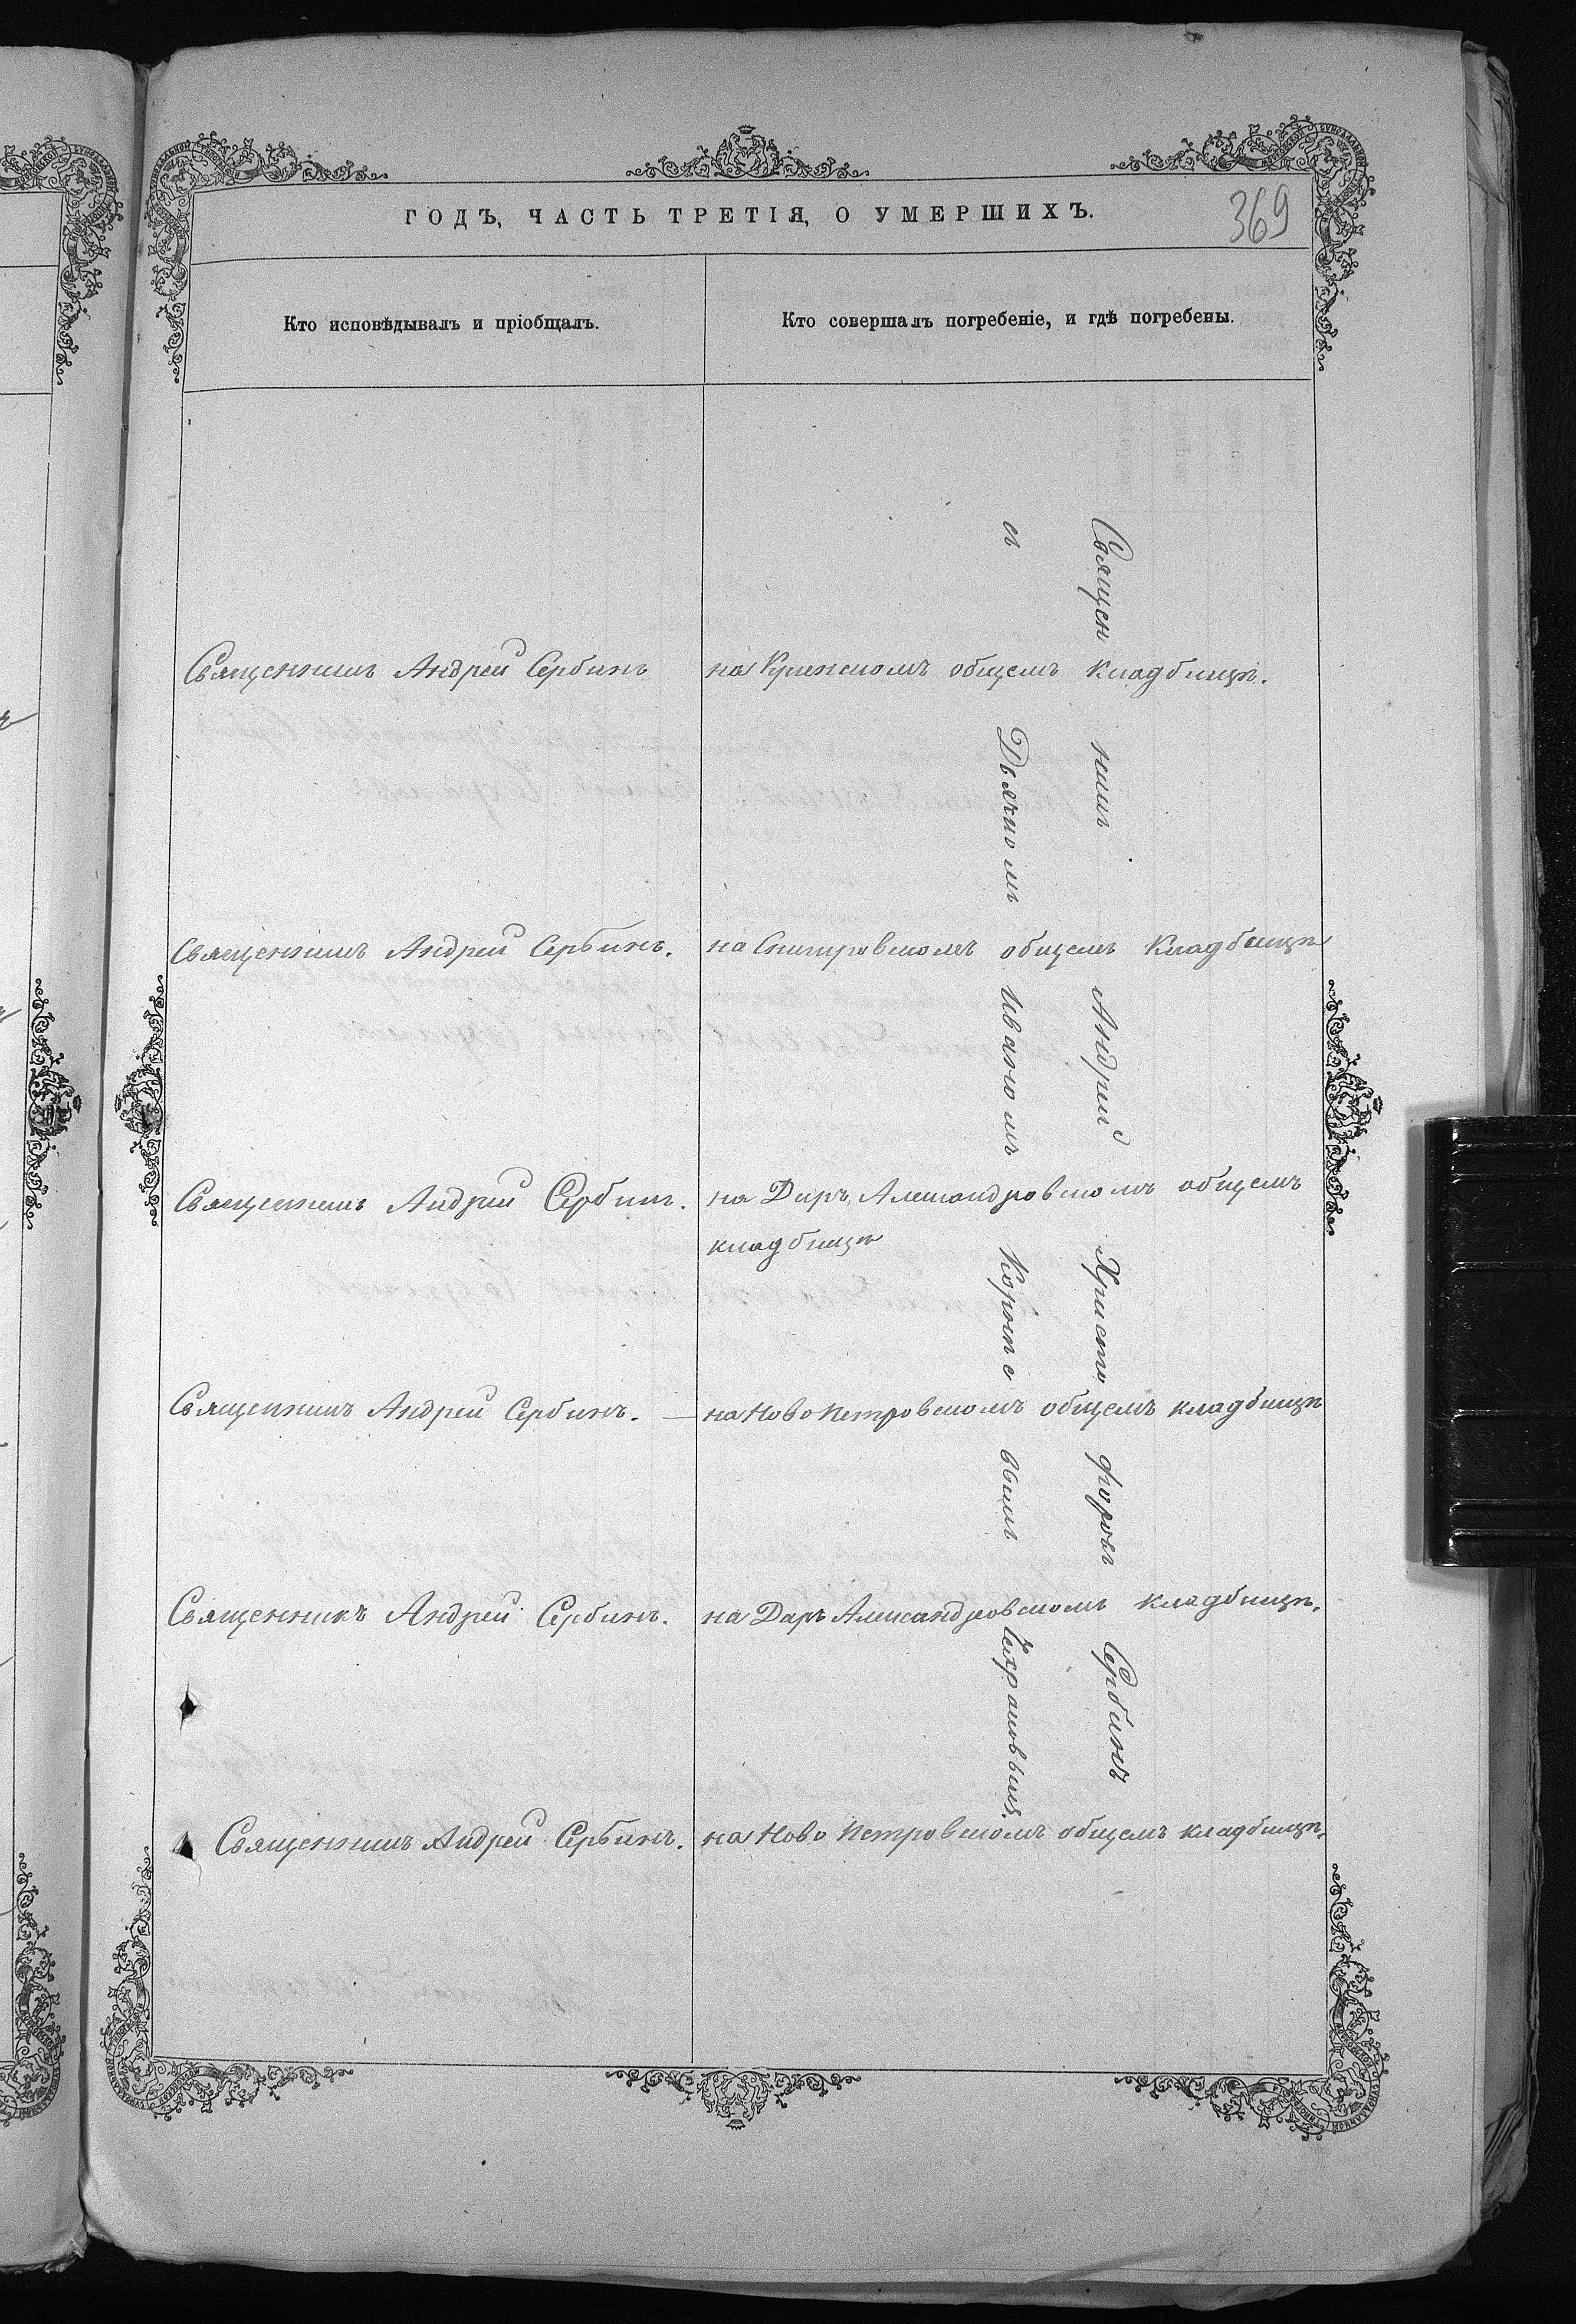 ГОДЪ, ЧАСТЬ ТРЕТІЯ, О УМЕРШИХЪ.
369
Кто исповѣдывалъ и пріобщалъ.
Кто совершалъ погребеніе, и гдѣ погребены.
Священникъ Андрей Сербинъ
на общемъ кладбищѣ.
Священникъ Андрей Сербинъ.
на общемъ кладбищѣ
Священникъ Андрей Сербинъ.
на Даръ Александровскомъ общемъ
кладбищѣ
Священникъ Андрей Сербинъ.
на Ново Петровскомъ общемъ кладбищѣ
Священникъ Андрей Сербинъ.
на Даръ Александровскомъ кладбищѣ.
Священникъ Андрей Сербинъ.
на Ново Петровскомъ общемъ кладбищѣ.
Священникъ Андрей Христофоровъ Сербинъ
съ Дьякномъ Иваномъ